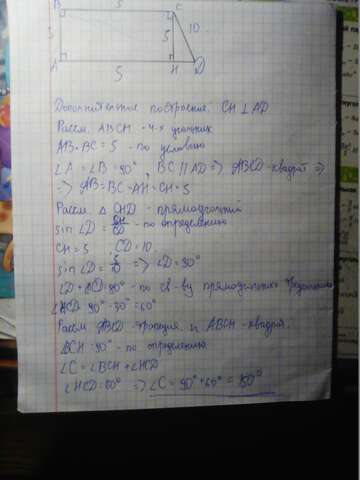 B 5 C
5 5 10
A 5 H D
Дополнительное построение: CH ⊥ AD
Рассм. ABCH - 4-х угольник
AB=BC=5 - по условию
∠A=∠B=90°, BC||AD => ABCD-квадрат =>
=> AB=BC=AH=CH=5
Рассм. △ CHD - прямоугольный
sin∠D = CH/CD - по определению
CH=5 CD=10
sin∠D = 5/10 => ∠D=30°
- по св-ву
∠HCD 90°-30°=60°
Рассм. ABCD-трапеция и ABCH-квадрат.
∠BCH=90° - по определению
∠C=∠BCH+∠HCD
∠HCD=60° => ∠C=90°+60°=150°